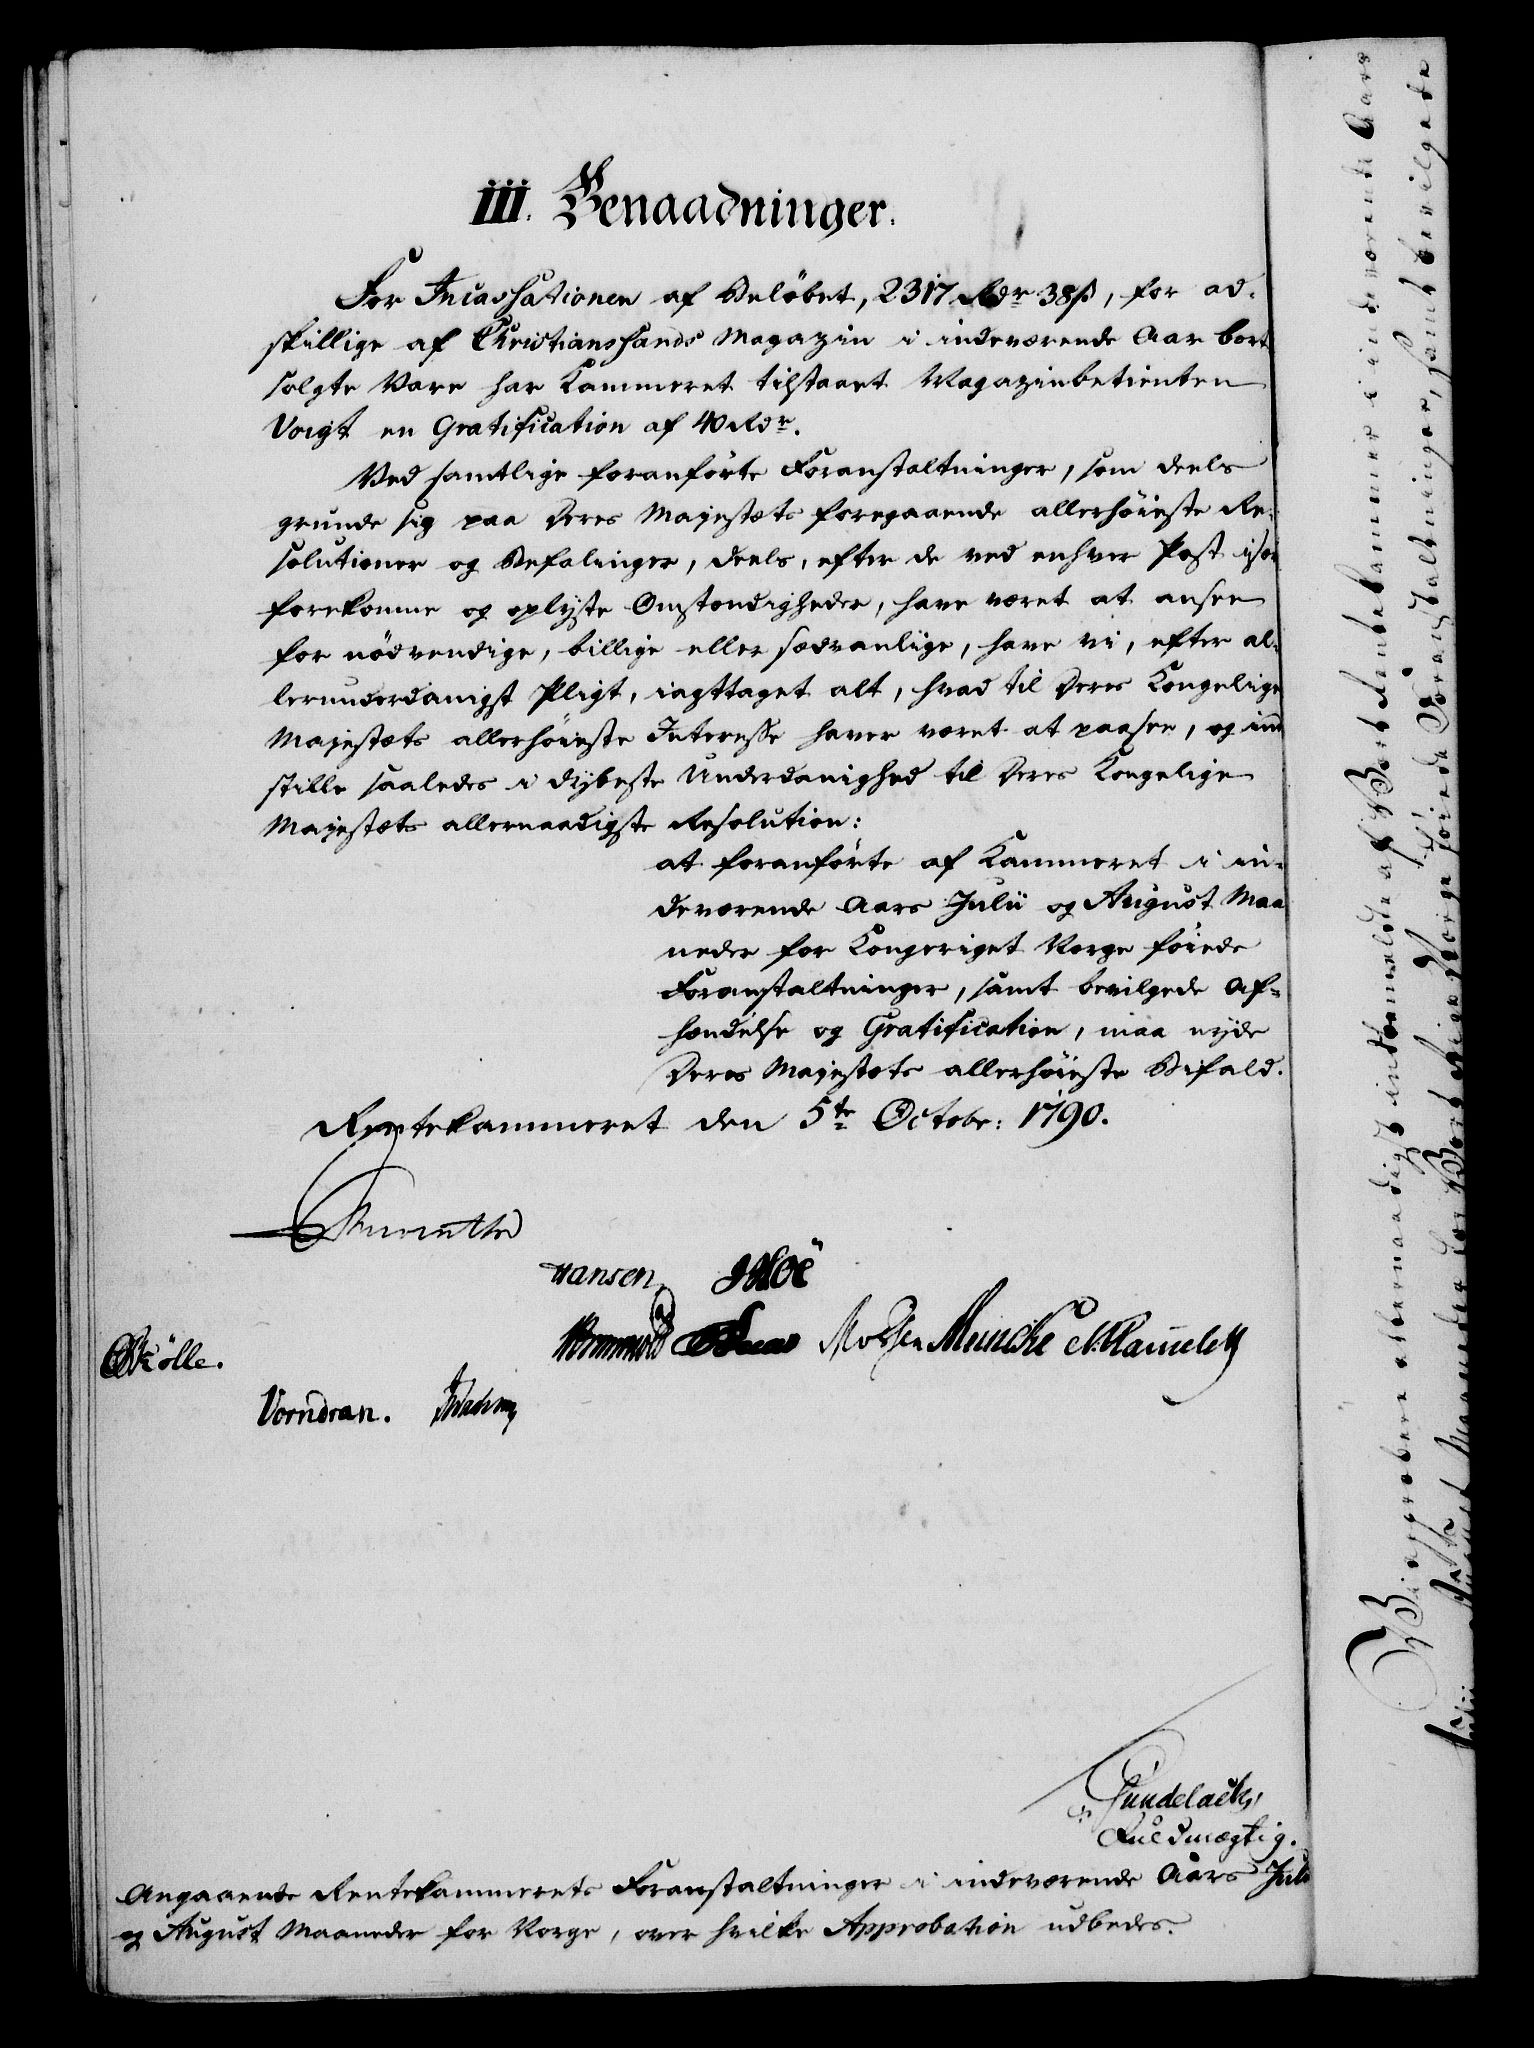 III. Benaadninger.
For Incassationen af Beløbet, 2317 Rdr 38 ß, for ad-
skillige af Christianssands Magazin i indeværende Aar bort
solgte Vare har Kammeret tilstaaet Magazinbetienten
Voigt en Gratification af 40 Rdr.
Ved samtlige foranførte Foranstaltninger, som deels
grunde sig paa Deres Majestæts foregaaende allerhøieste Re-
solutioner og Befalinger, deels, efter de ved enhver Post især
forekomne og oplyste Omstændigheder, have været at ansee
for nödvendige, billige eller sædvanlige, have vi, efter al-
lerunderdanigst Pligt, iagttaget alt, hvad til Deres Kongelige
Majestæts allerhøieste Interesse haver været at paasee, og ind
stille saaledes i dybeste Underdanighed til Deres Kongelige
Majestæts allernaadigste Resolution:
at foranførte af Kammeret i in-
deværende Aars Julii og August Maa
neder for Kongeriget Norge føiede
Foranstaltninger, samt bevilgede Af-
hændelse og Gratification, maa nyde
Deres Majestæts allerhøieste Bifald.
Rentekammeret den 5te Octobr: 1790.
Hansen
Mölle.
Vorndran.
Gundelach,
Fuldmægtig.
Angaaende Rentekammerets Foranstaltninger i indeværende Aars Julii
og August Maaneder for Norge, over hvilke Approbation udbedes.
Vi approbere allernaadigst indbemeldte af Vort Rentekammer i indeværende Aars
August Maaneder for Vort Rige Norge føiede Foranstaltninger, samt bevilgede